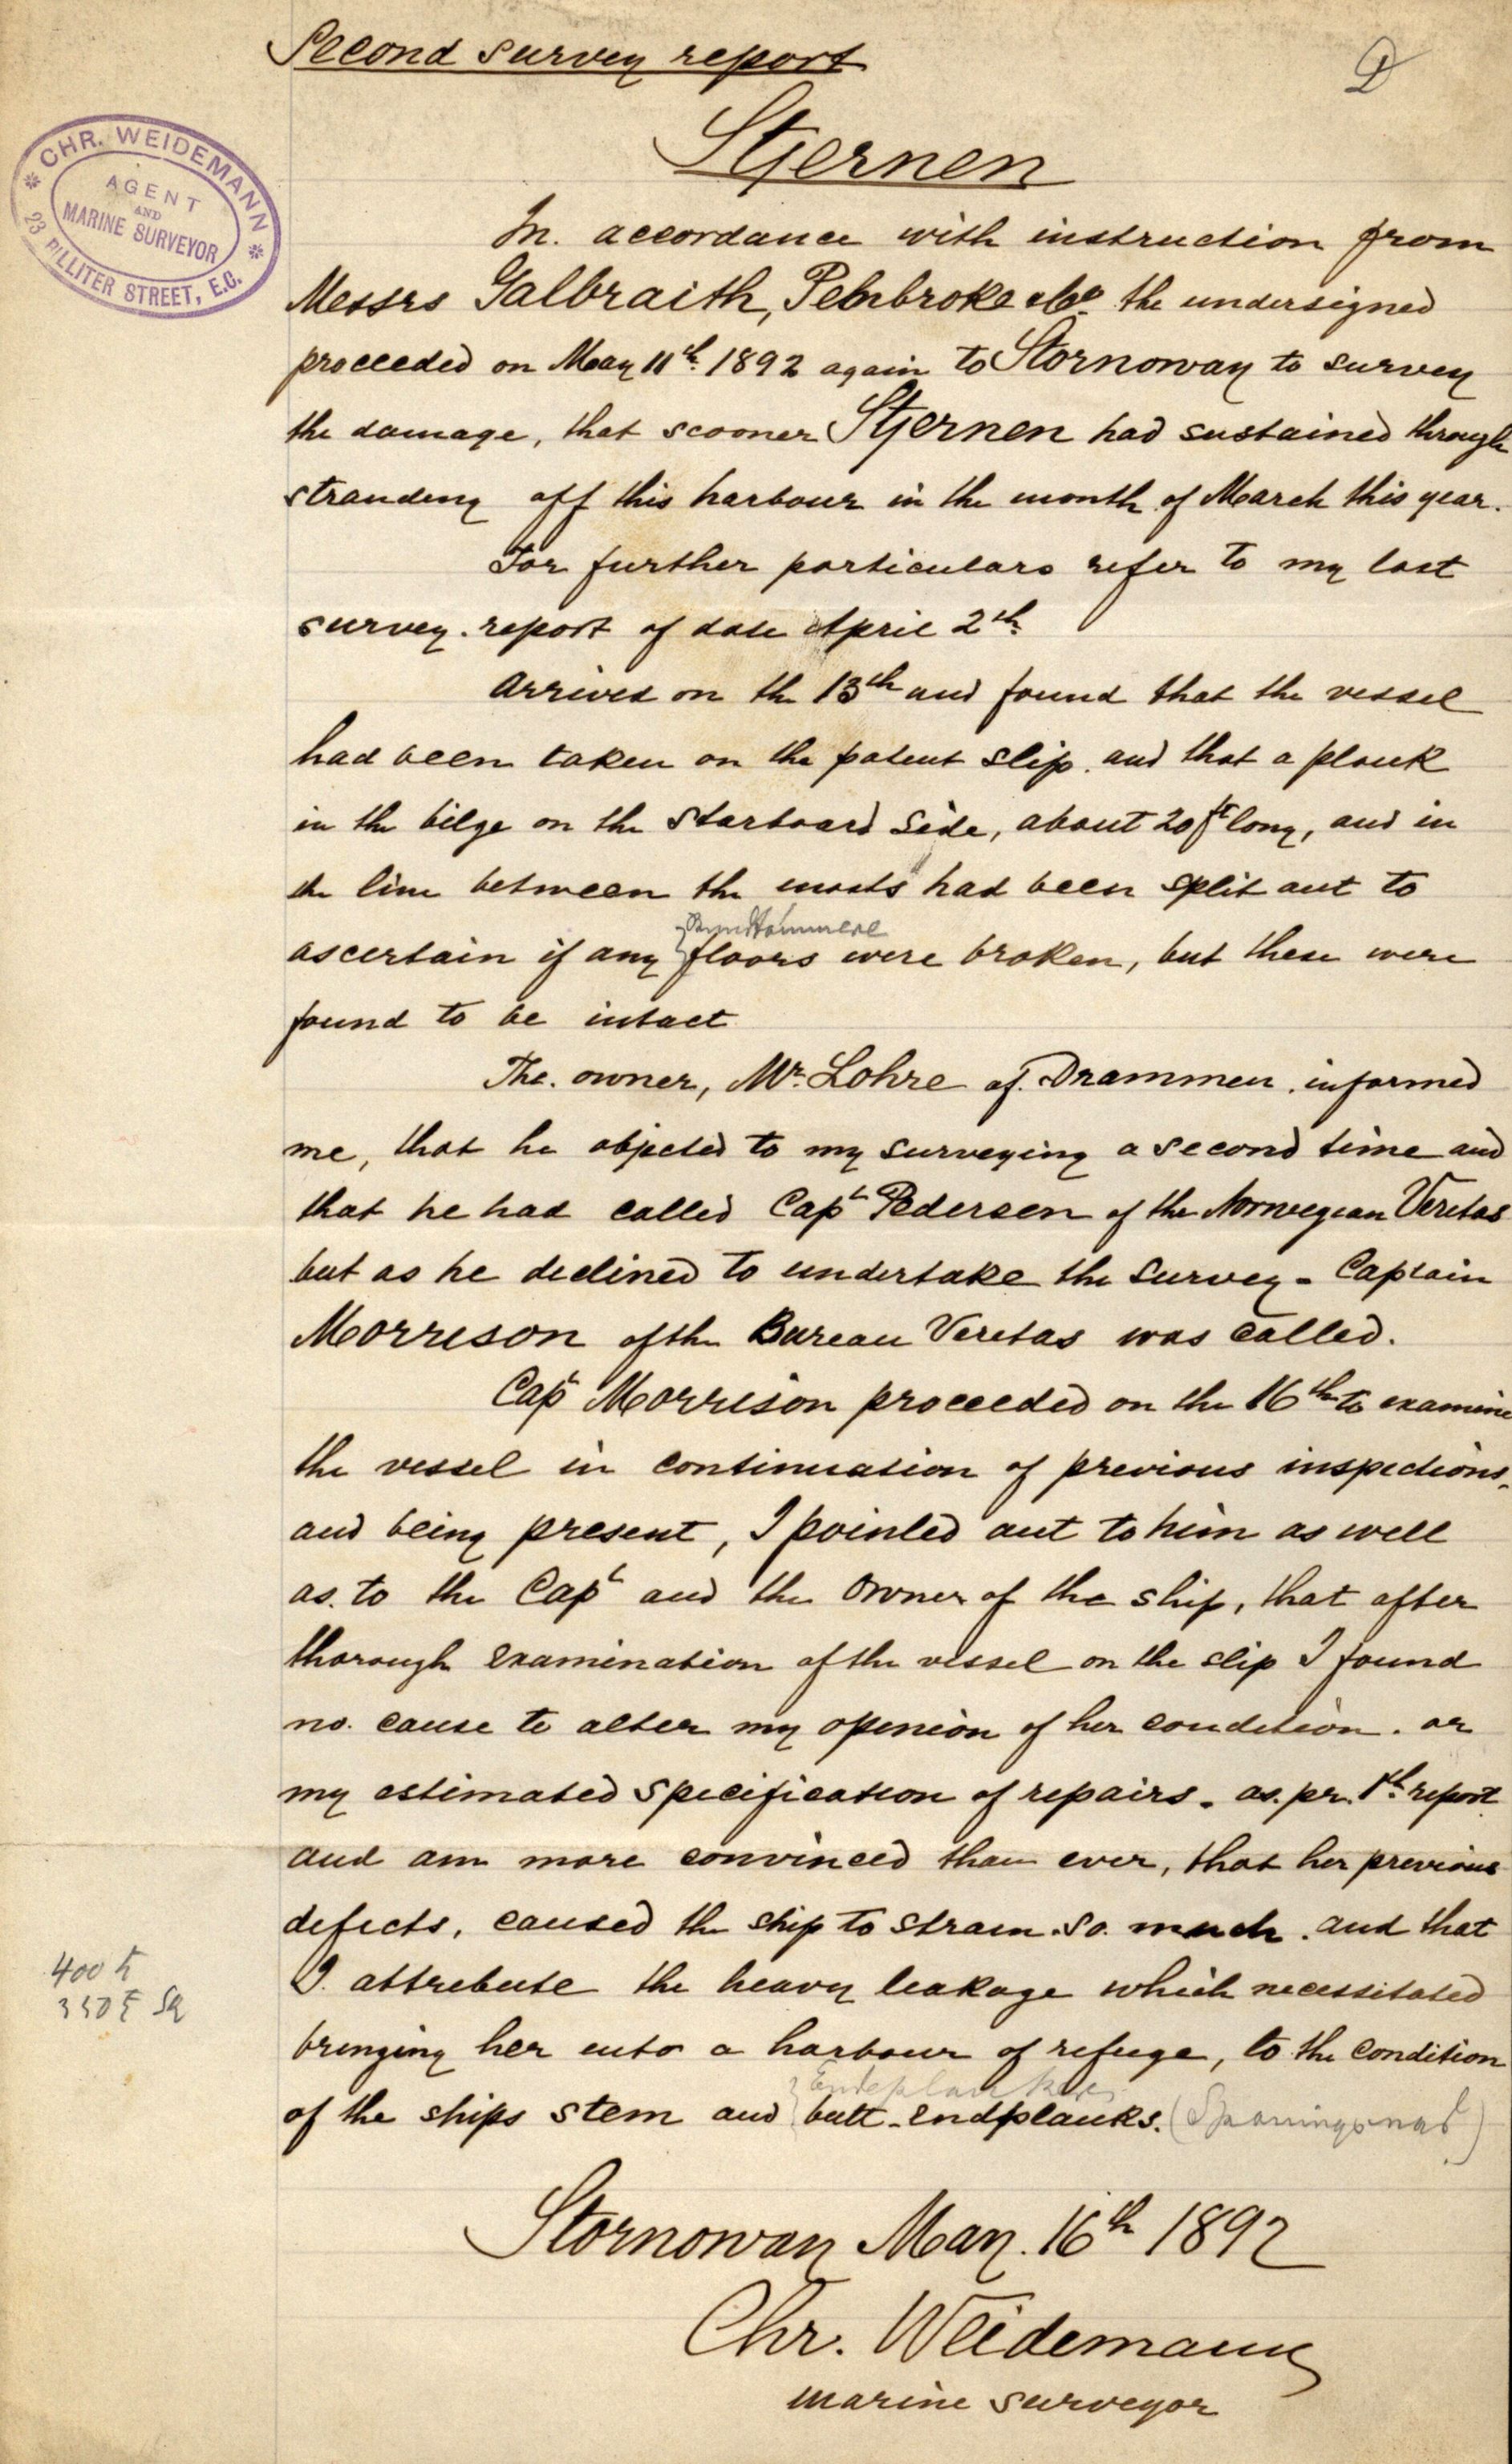 Second survey report
D
Stjernen
CHR. WEIDEMANN
AGENT
AND
MARINE SURVEYOR
23 BILLITER STREET, E.C.
In. accordance with instruction from
Messrs Galbraith, Pembroke & Co. the undersigned
proceeded on May 11th 1892 again to Stornoway to survey
the damage, that scooner Stjernen had sustained through
stranding off this harbour in the month of March this year.
For further particulars refer to my last
survey. report of date April 2th
Arrived on the 13th and found that the vessel
had been taken on the patent slip. and that a plank
in the bilge on the starboard side, about 20ft long, and in
the line between the masts had been split out to
Bundstommere
ascertain if any floors were broken, but these were
found to be intact
The. owner, Mr. Lohre of. Drammen. informed
me, that he objected to my surveying a second time and
that he had called Capt Pedersen of the Norwegian Veritas
but as he declined to undertake the survey - Captain
Morrison of the Bureau Veritas was called.
Capt Morrison proceeded on the 16th to examine
the vessel in continuation of previous inspections,
and being present, I pointed out to him as well
as. to the Capt and the owner of the ship, that after
thorough examination of the vessel on the slip I found
no. cause to alter my openion of her condition. or
my estimated specification of repairs. as. pr. 1th report
and am more convinced than ever, that her previous
defects, caused the ship to strain. so. much. and that
I. attribute the heavy leakage which necessitated
bringing her into a harbour of refuge, to the condition
Endeplanker
of the ships stem and butt-endplanks. (Spanningsnad)
400
350 £
Stornoway May. 16th 1892
Chr. Weidemann
marine surveyor